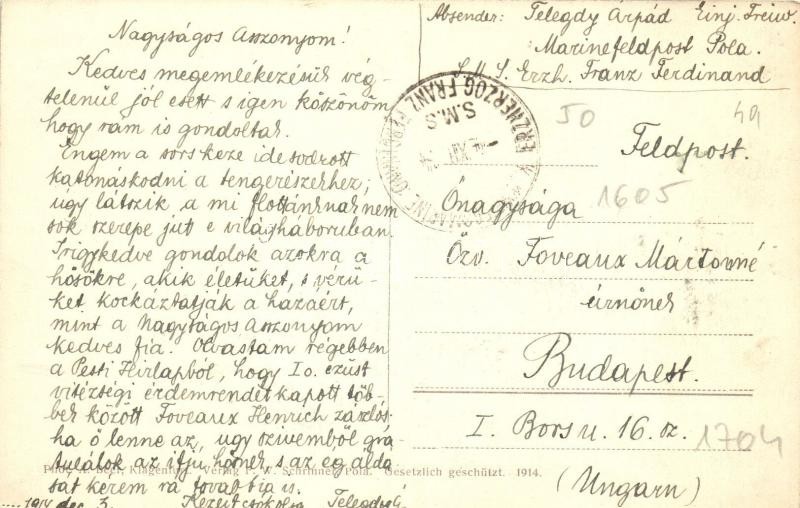 Nagyságos Asszonyom!
Kedves megemlékezésük vég-
telenül jól esett s igen köszönöm
hogy rám is gondoltak.
Engem a sors keze ide sodrott
katonáskodni a tengerészekhez;
úgy látszik a mi flottánknak nem
sok szerepe jut e világháboruban.
Irigykedve gondolok azokra a
hősökre, akik életüket, s vérü-
ket kockáztatják a hazáért,
mint a Nagyságos Asszonyom
kedves fia. Olvastam régebben
a Pesti Hirlapból, hogy I o. ezüst
vitézségi érdemrendet kapott töb-
bek között Foveaux Henrich zászlós
ha ő lenne az, ugy szivemből gra-
tulálok az ifju hősnek, s az ég áldá-
sát kérem rá továbbra is.
1914 dec 3. Kezeit csókolja Telegdy Á
Absender: Telegdy Árpád Einj. Freiw.
Marinefeldpost Pola.
S. M. S. Erzh. Franz Ferdinand
ERZHERZOG FRANZ FERDINAND
S.M.S
XII
50
49
Feldpost.
1605
Őnagysága
Özv. Foveaux Mártonné
úrnőnek
Budapest.
I. Bors u. 16. sz.
1704
(Ungarn)
Verlag F. W. Schrinner, Pola. Gesetzlich geschützt. 1914.